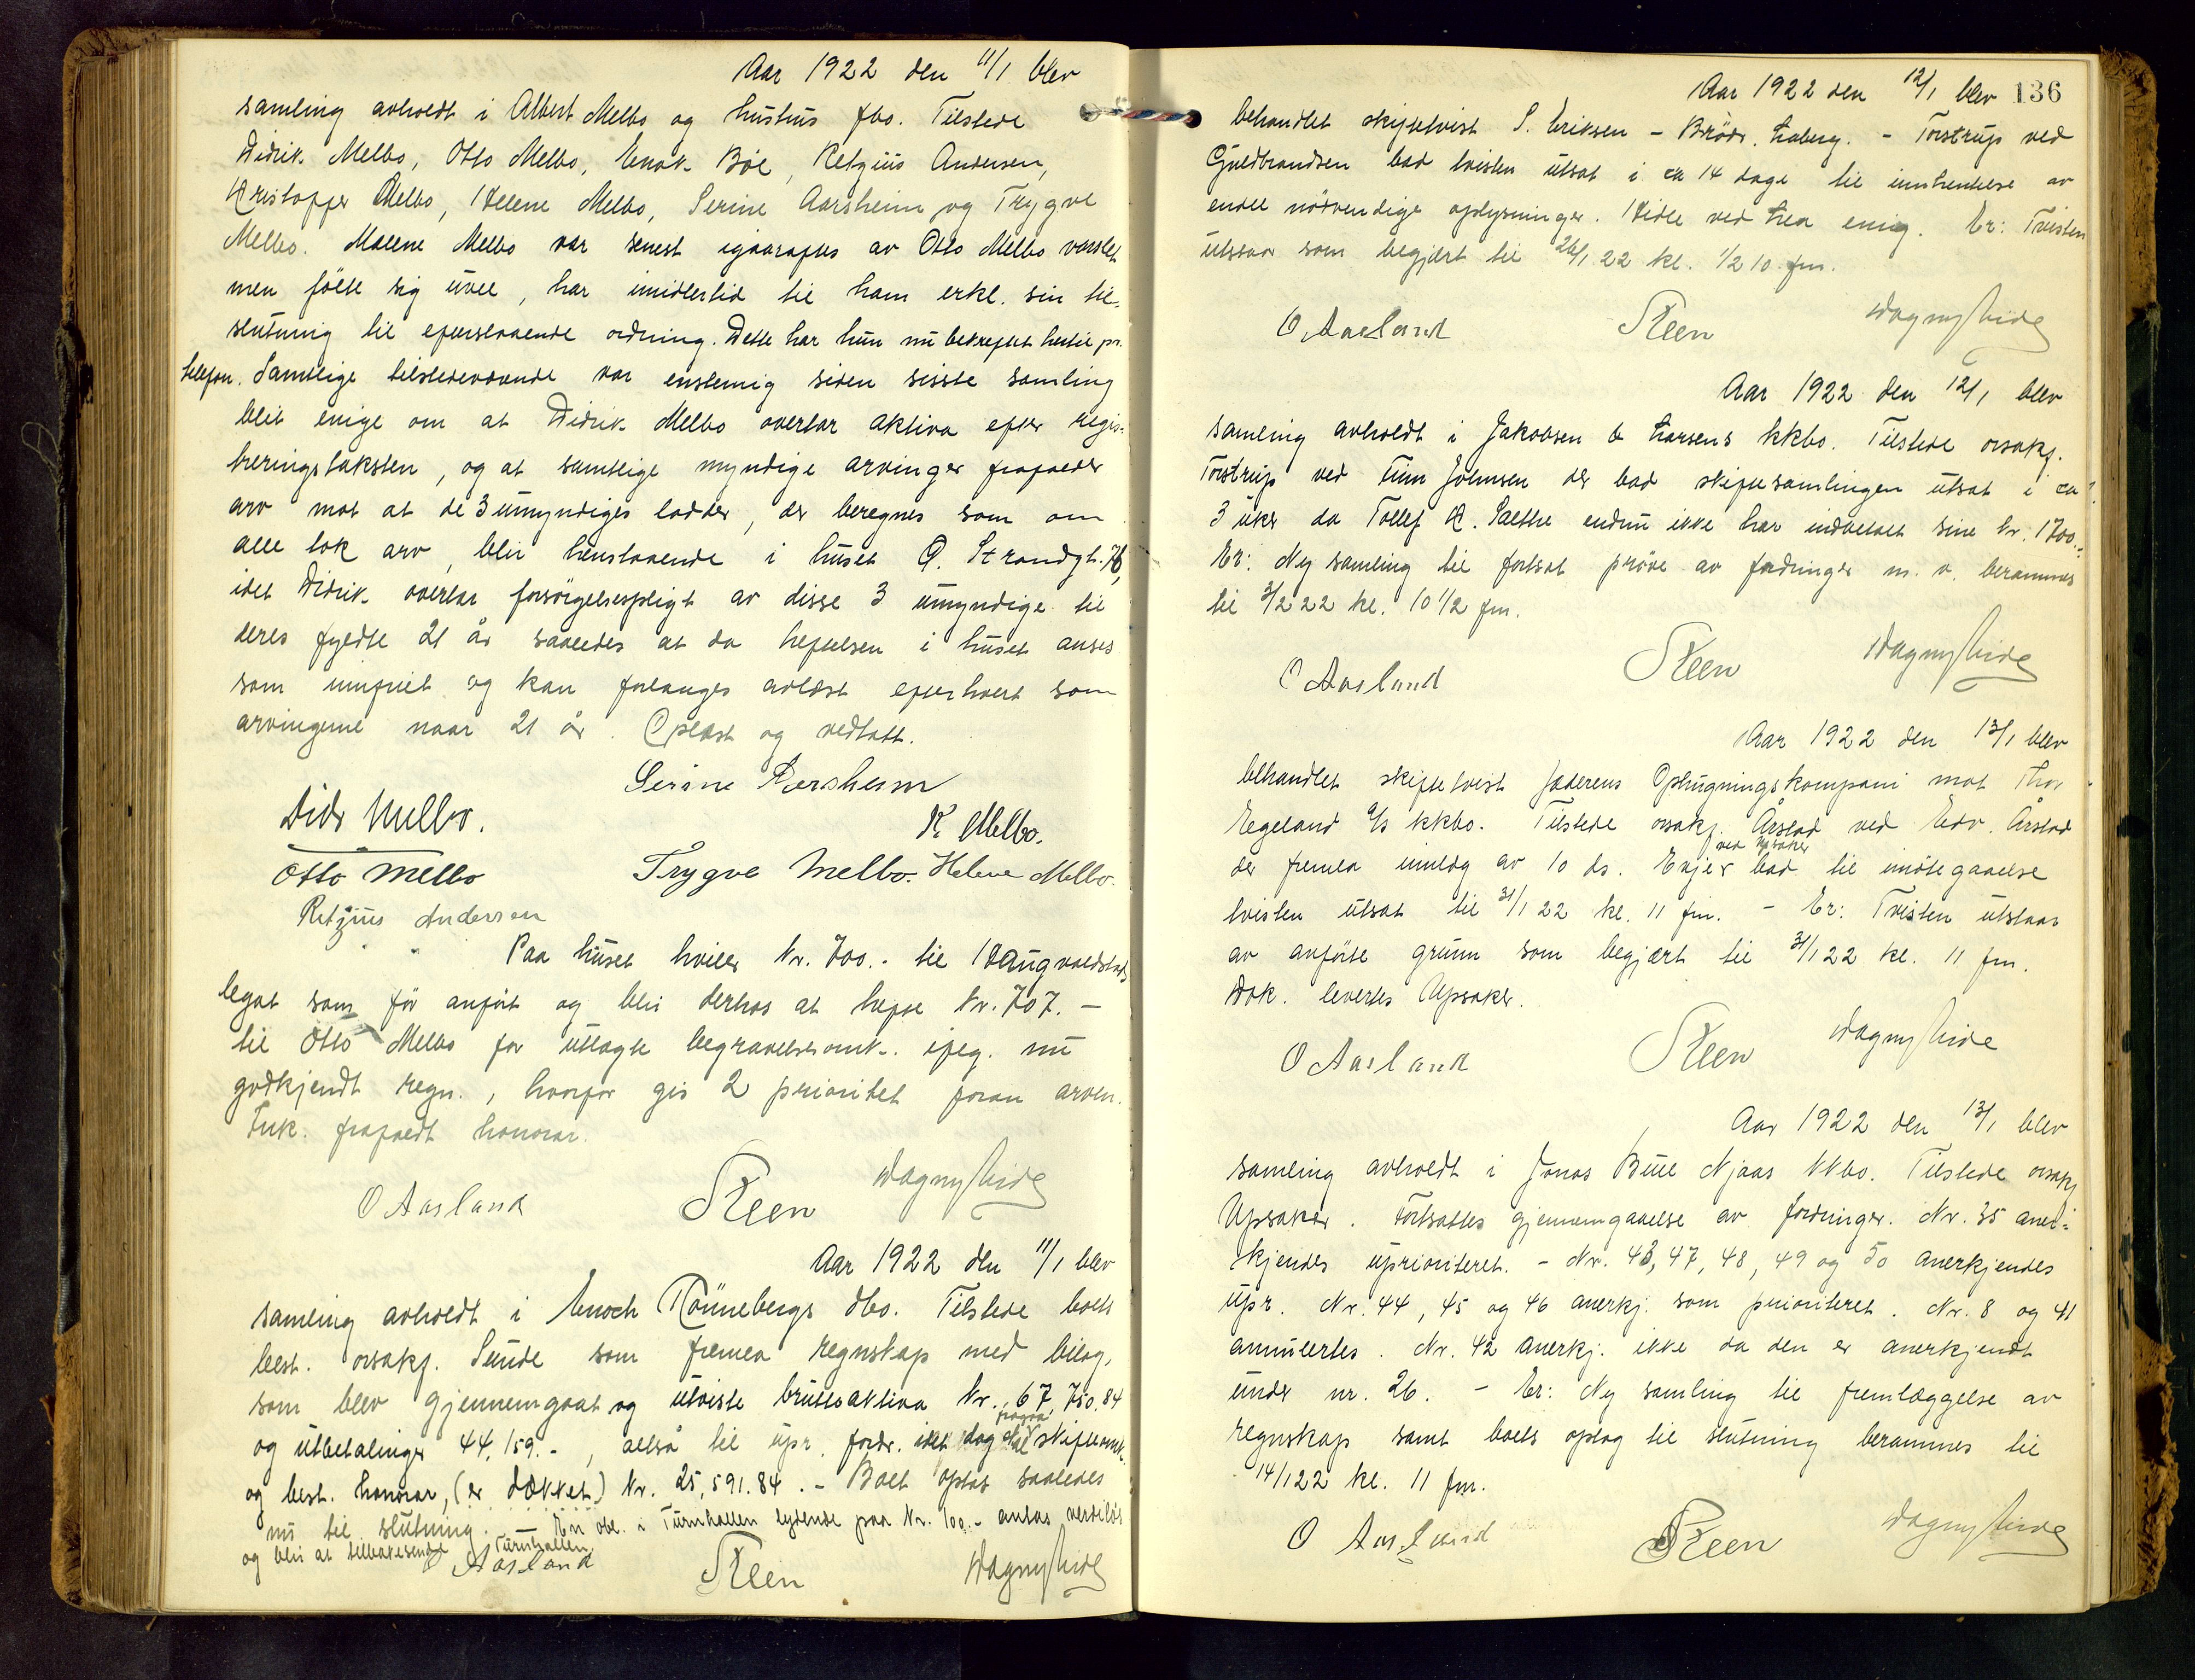 Aar 1922 den 11/1 blev
samling avholdt i Albert Melbo og hustrus fbo. Tilstede
Didrik Melbo, Otto Melbo, Enok Bøe, Retzius Andersen,
Kristoffer Melbo, Helene Melbo, Serine Aarsheim og Trygve
Melbo. Malene Melbo var senest igaaraftes av Otto Melbo varslet
men følte sig uvel, har imidlertid til ham erkl. sin til-
slutning til efterstaaende ordning. Dette har hun nu bekreftet hertil pr.
telefon. Samtlige tilstedeværende var enstemig siden sisste samling
blit enige om at Didrik Melbo overtar aktiva efter regis-
treringstaksten, og at samtlige myndige arvinger frafalder
arv mot at de 3 umyndiges lodder, der beregnes som om
alle tok arv, blir henstaaende i huset Ø. Strandgt. 76,
idet Didrik overtar forsörgelsespligt av disse 3 umyndige til
deres fyldte 21 år saaledes at da heftelsen i huset anses
som innfriet og kan forlanges avlæst efterhvert som
arvingerne naar 21 år. Oplæst og vedtatt.
Serine Aarsheim
Didr Melbo.
K. Melbo.
Otto Melbo
Trygve Melbo. Helene Melbo.
Retzius Andersen
Paa huset hviler kr. 700.- til Haugvaldstads
legat som før anført og blir derhos at hefte kr. 707.-
til Otto Melbo for utlagte begravelsesomk. ifølg. nu
godkjendt regn., hvorfor gis 2 prioritet foran arven.
Ink. frafaldt honorar.
O Aasland
Steen
Dagny Eide
Aar 1922 den 11/1 blev
samling avholdt i Enoch Rönnebergs dbo. Tilstede boets
best. orsakf. Sunde som fremla regnskap med bilag,
som blev gjennemgaat og utviste bruttoaktiva kr. 67,750.84
og utbetalinger 44,159.-, altså til upr. fordr. idet dog skifteomk.
og best. honorar, (er dækket) kr. 25,591.84.- Boet optas saaledes
nu til slutning. En obl. i Turnhallen lydende paa kr. 100.- antas verdiløs
og blir at tilbakesende Turnhallen
O Aasland
Steen
Dagny Eide
136
Aar 1922 den 12/1 blev
behandlet skiftetvist S. Eriksen - Brødr. - Torstrup ved
Guldbrandsen bad tvisten utsat i ca 14 dage til innhentelse av
endel nödvendige oplysninger. Hidle ved Lea enig. Er: Tvisten
utstaar som begjært til 26/1 22 kl. 1/2 10 fm.
O Aasland
Steen
Dagny Eide
Aar 1922 den 12/1 blev
samling avholdt i Jakobsen & Larsens kkbo. Tilstede orsakf.
Torstrup ved Finn Johnsen der bad skiftesamlingen utsat i ca
3 uker da Tollef K. Sæthe endnu ikke har indbetalt sine kr. 1700.-
Er: Ny samling til fortsat prøve av fordringer m. v. berammes
til 3/2 22 kl. 10 1/2 fm.
O Aasland
Steen
Dagny Eide
Aar 1922 den 13/1 blev
behandlet skiftetvist Jæderens Ophugningskompani mot Thor
Egeland A/S kkbo. Tilstede orsakf. Årstad ved Edv. Årstad
ved Upsaker
der fremla innlæg av 10 ds. Exjer bad til imötegaaelse
tvisten utsat til 31/1 22 kl. 11 fm. - Er: Tvisten utstaar
av anførte grunn som begjært til 31/1 22 kl. 11 fm.
Dok. levertes Upsaker.
O Aasland
Steen
Dagny Eide
Aar 1922 den 13/1 blev
samling avholdt i Jonas Bull Njaas kkbo. Tilstede orsakf
Upsaker. Fortsattes gjennemgaaelse av fordringer. Nr. 35 aner-
kjendes uprioriteret. - Nr. 43, 47, 48, 49 og 50 anerkjendes
upr. Nr. 44, 45 og 46 anerkj. som prioriteret. Nr. 8 og 41
annulertes. Nr. 42 anerkj. ikke da den er anerkjendt
under nr. 26. - Er: Ny samling til fremlæggelse av
regnskap samt boets optag til slutning berammes til
14/1 22 kl. 11 fm.
O Aasland
Steen
Dagny Eide